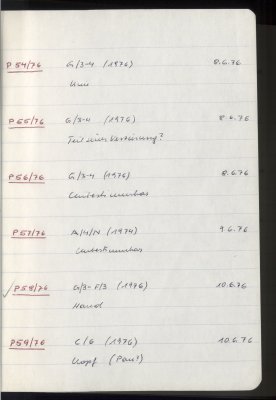 P54/76 G/3-4 (1976) 8.6.76
P55/76 G/3-4 (1976) 8.6.76
Teil einer Verzierung?
P56/76 G/3-4 (1976) 8.6.76
Unbestimmbar
P57/76 A/4/N (1974) 9.6.76
Unbestimmbar
✓ P58/76 G/3-F/3 (1976) 10.6.76
Hand
P59/76 C/6 (1976) 10.6.76
Kopf (Pan?)